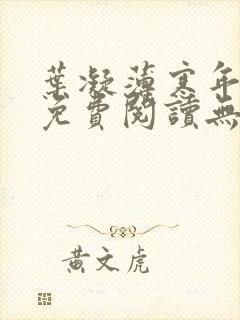 葉凝薄寒年
免費閱讀無
黃文虎